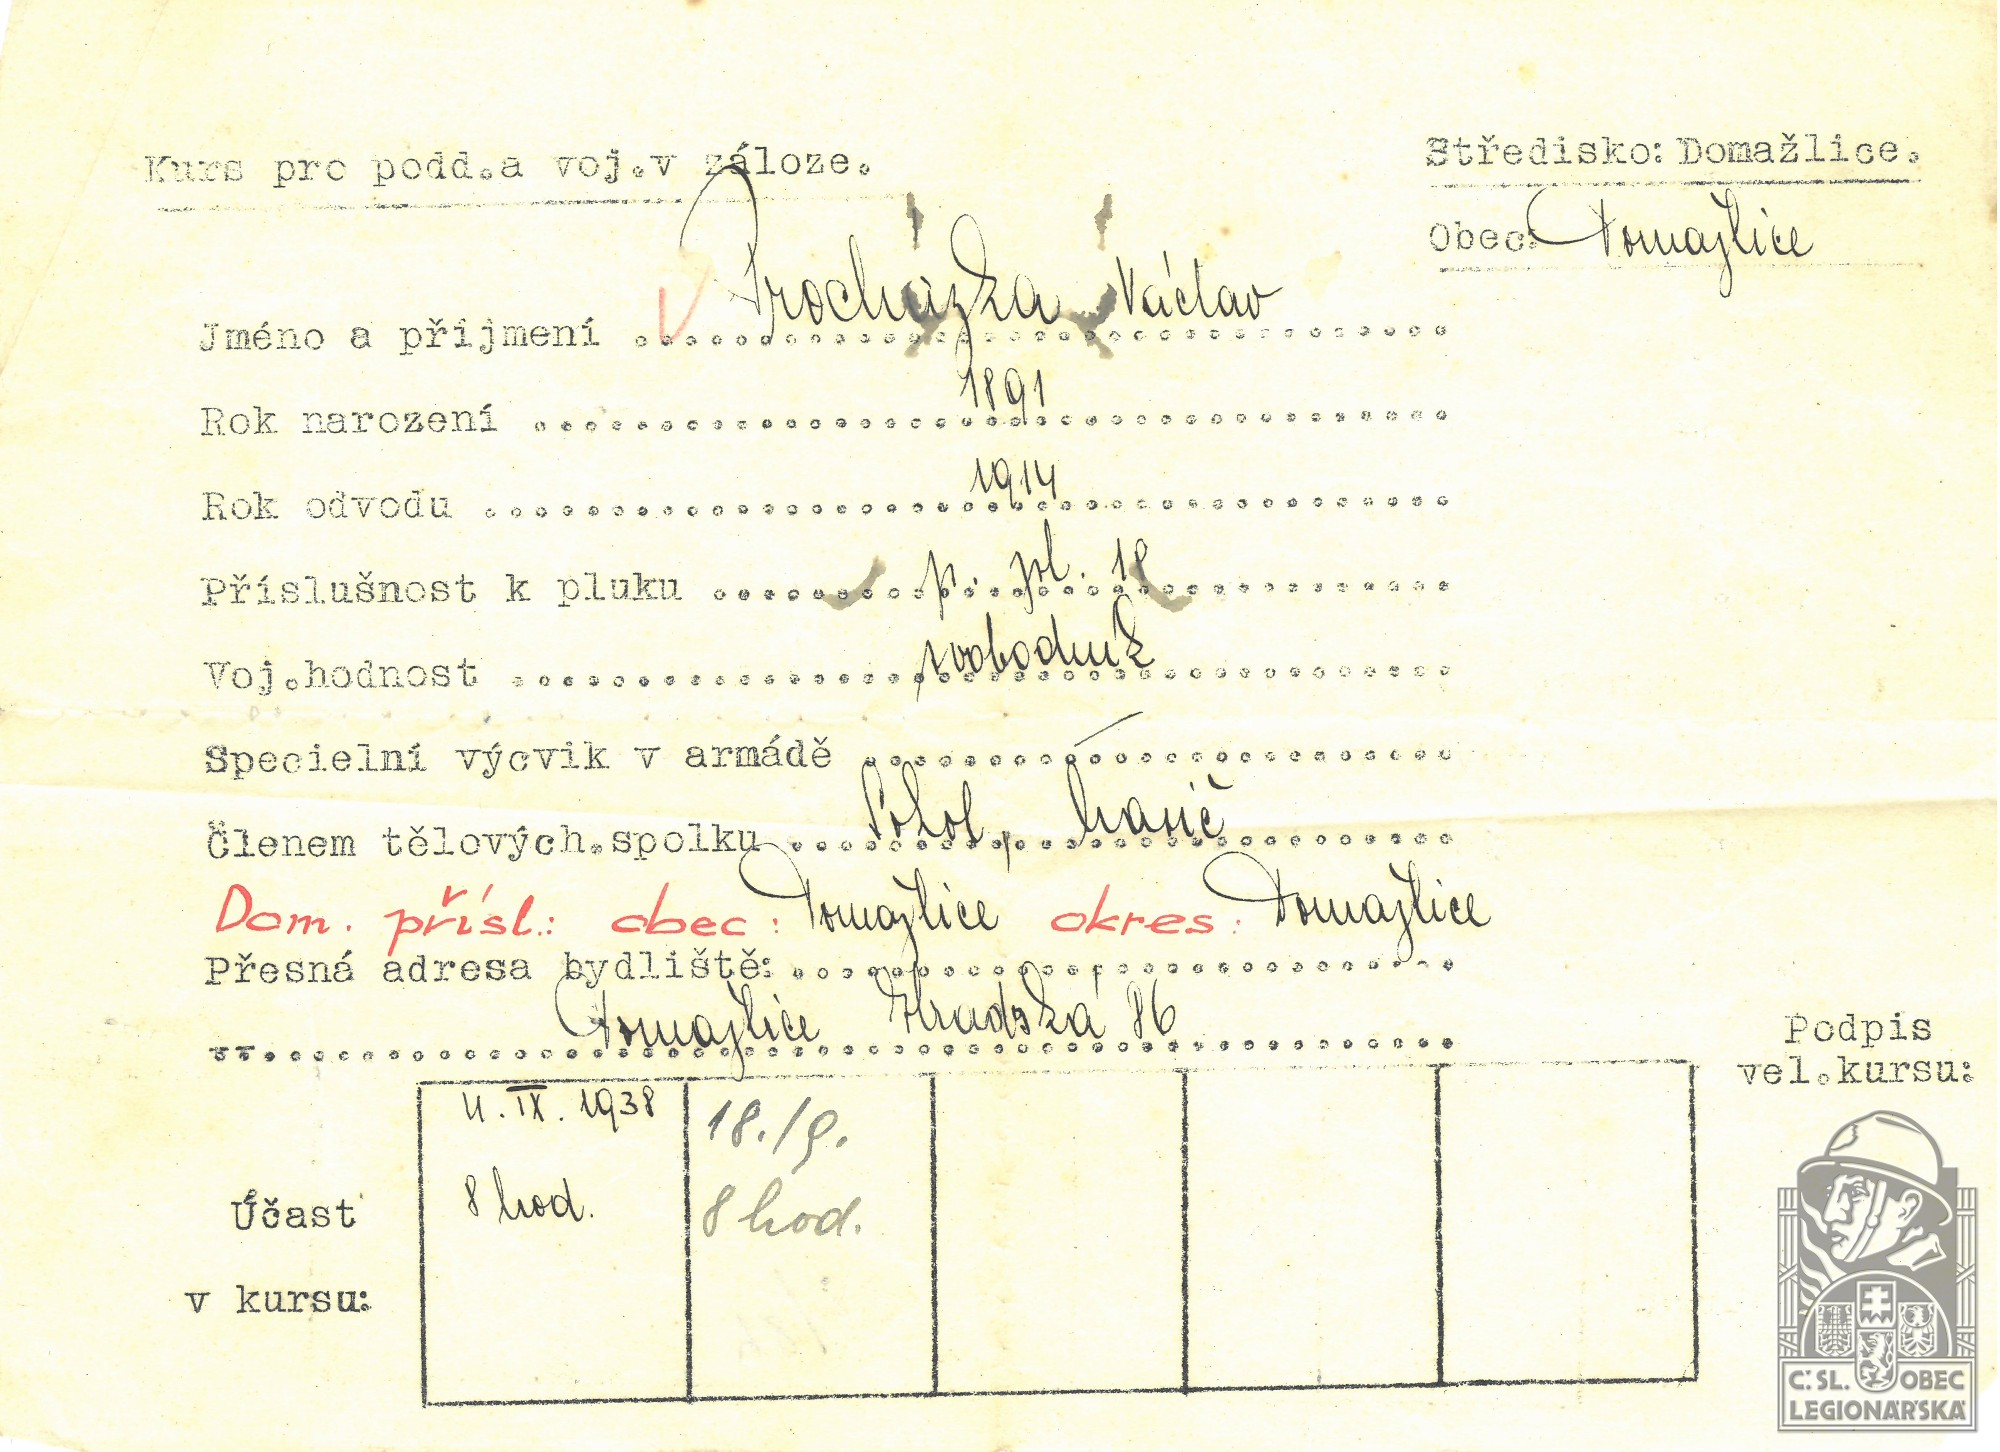 Kurs pro podd.a voj.v záloze.
Středisko: Domažlice.
Obec: Domažlice
Jméno a přijmení Procházka Václav
Rok narození 1891
Rok odvodu 1914
Příslušnost k pluku p. pl. 18
Voj.hodnost svobodník
Specielní výcvik v armádě
Členem tělových.spolku Sokol, hasič
Dom. přísl.: obec: Domažlice okres: Domažlice
Přesná adresa bydliště:
Domažlice Hradská 86
Podpis
vel.kursu:
Účast
v kursu:
11. IX. 1938
8 hod.
18./9.
8 hod.
Č.SL. OBEC
LEGIONÁŘSKÁ